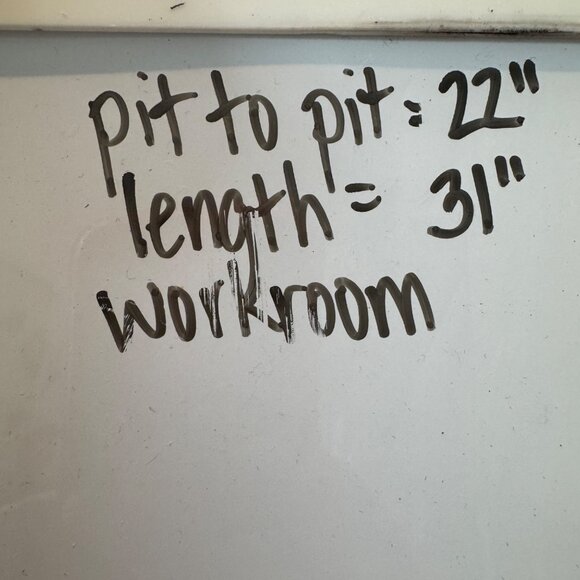 pit to pit = 22"
length = 31"
workroom